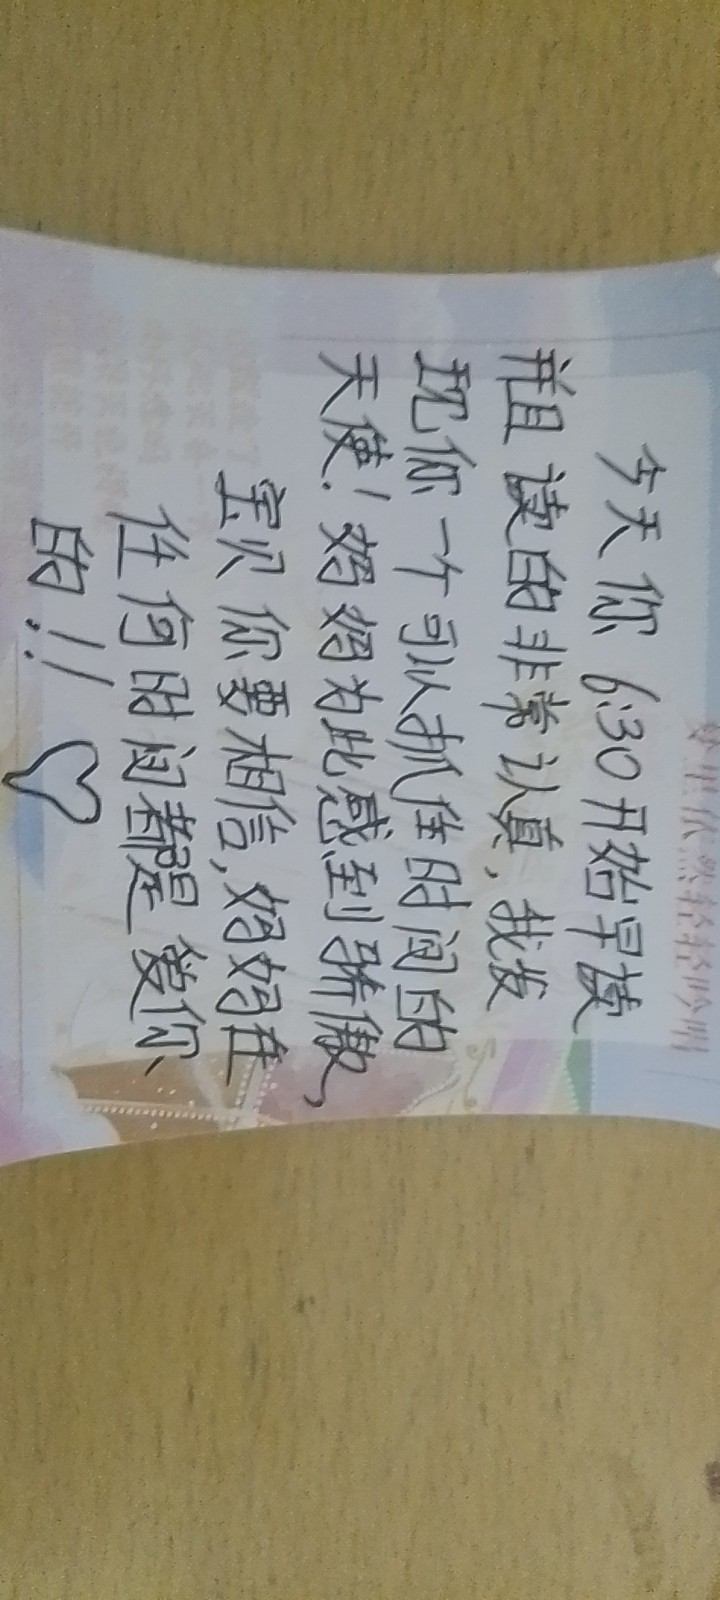 今天你 6:30开始早读
并且读的非常认真，我发
现你一个可以抓住时间的
天使！妈妈为此感到骄傲，
宝贝你要相信，妈妈在
任何时间都是爱你
的！！